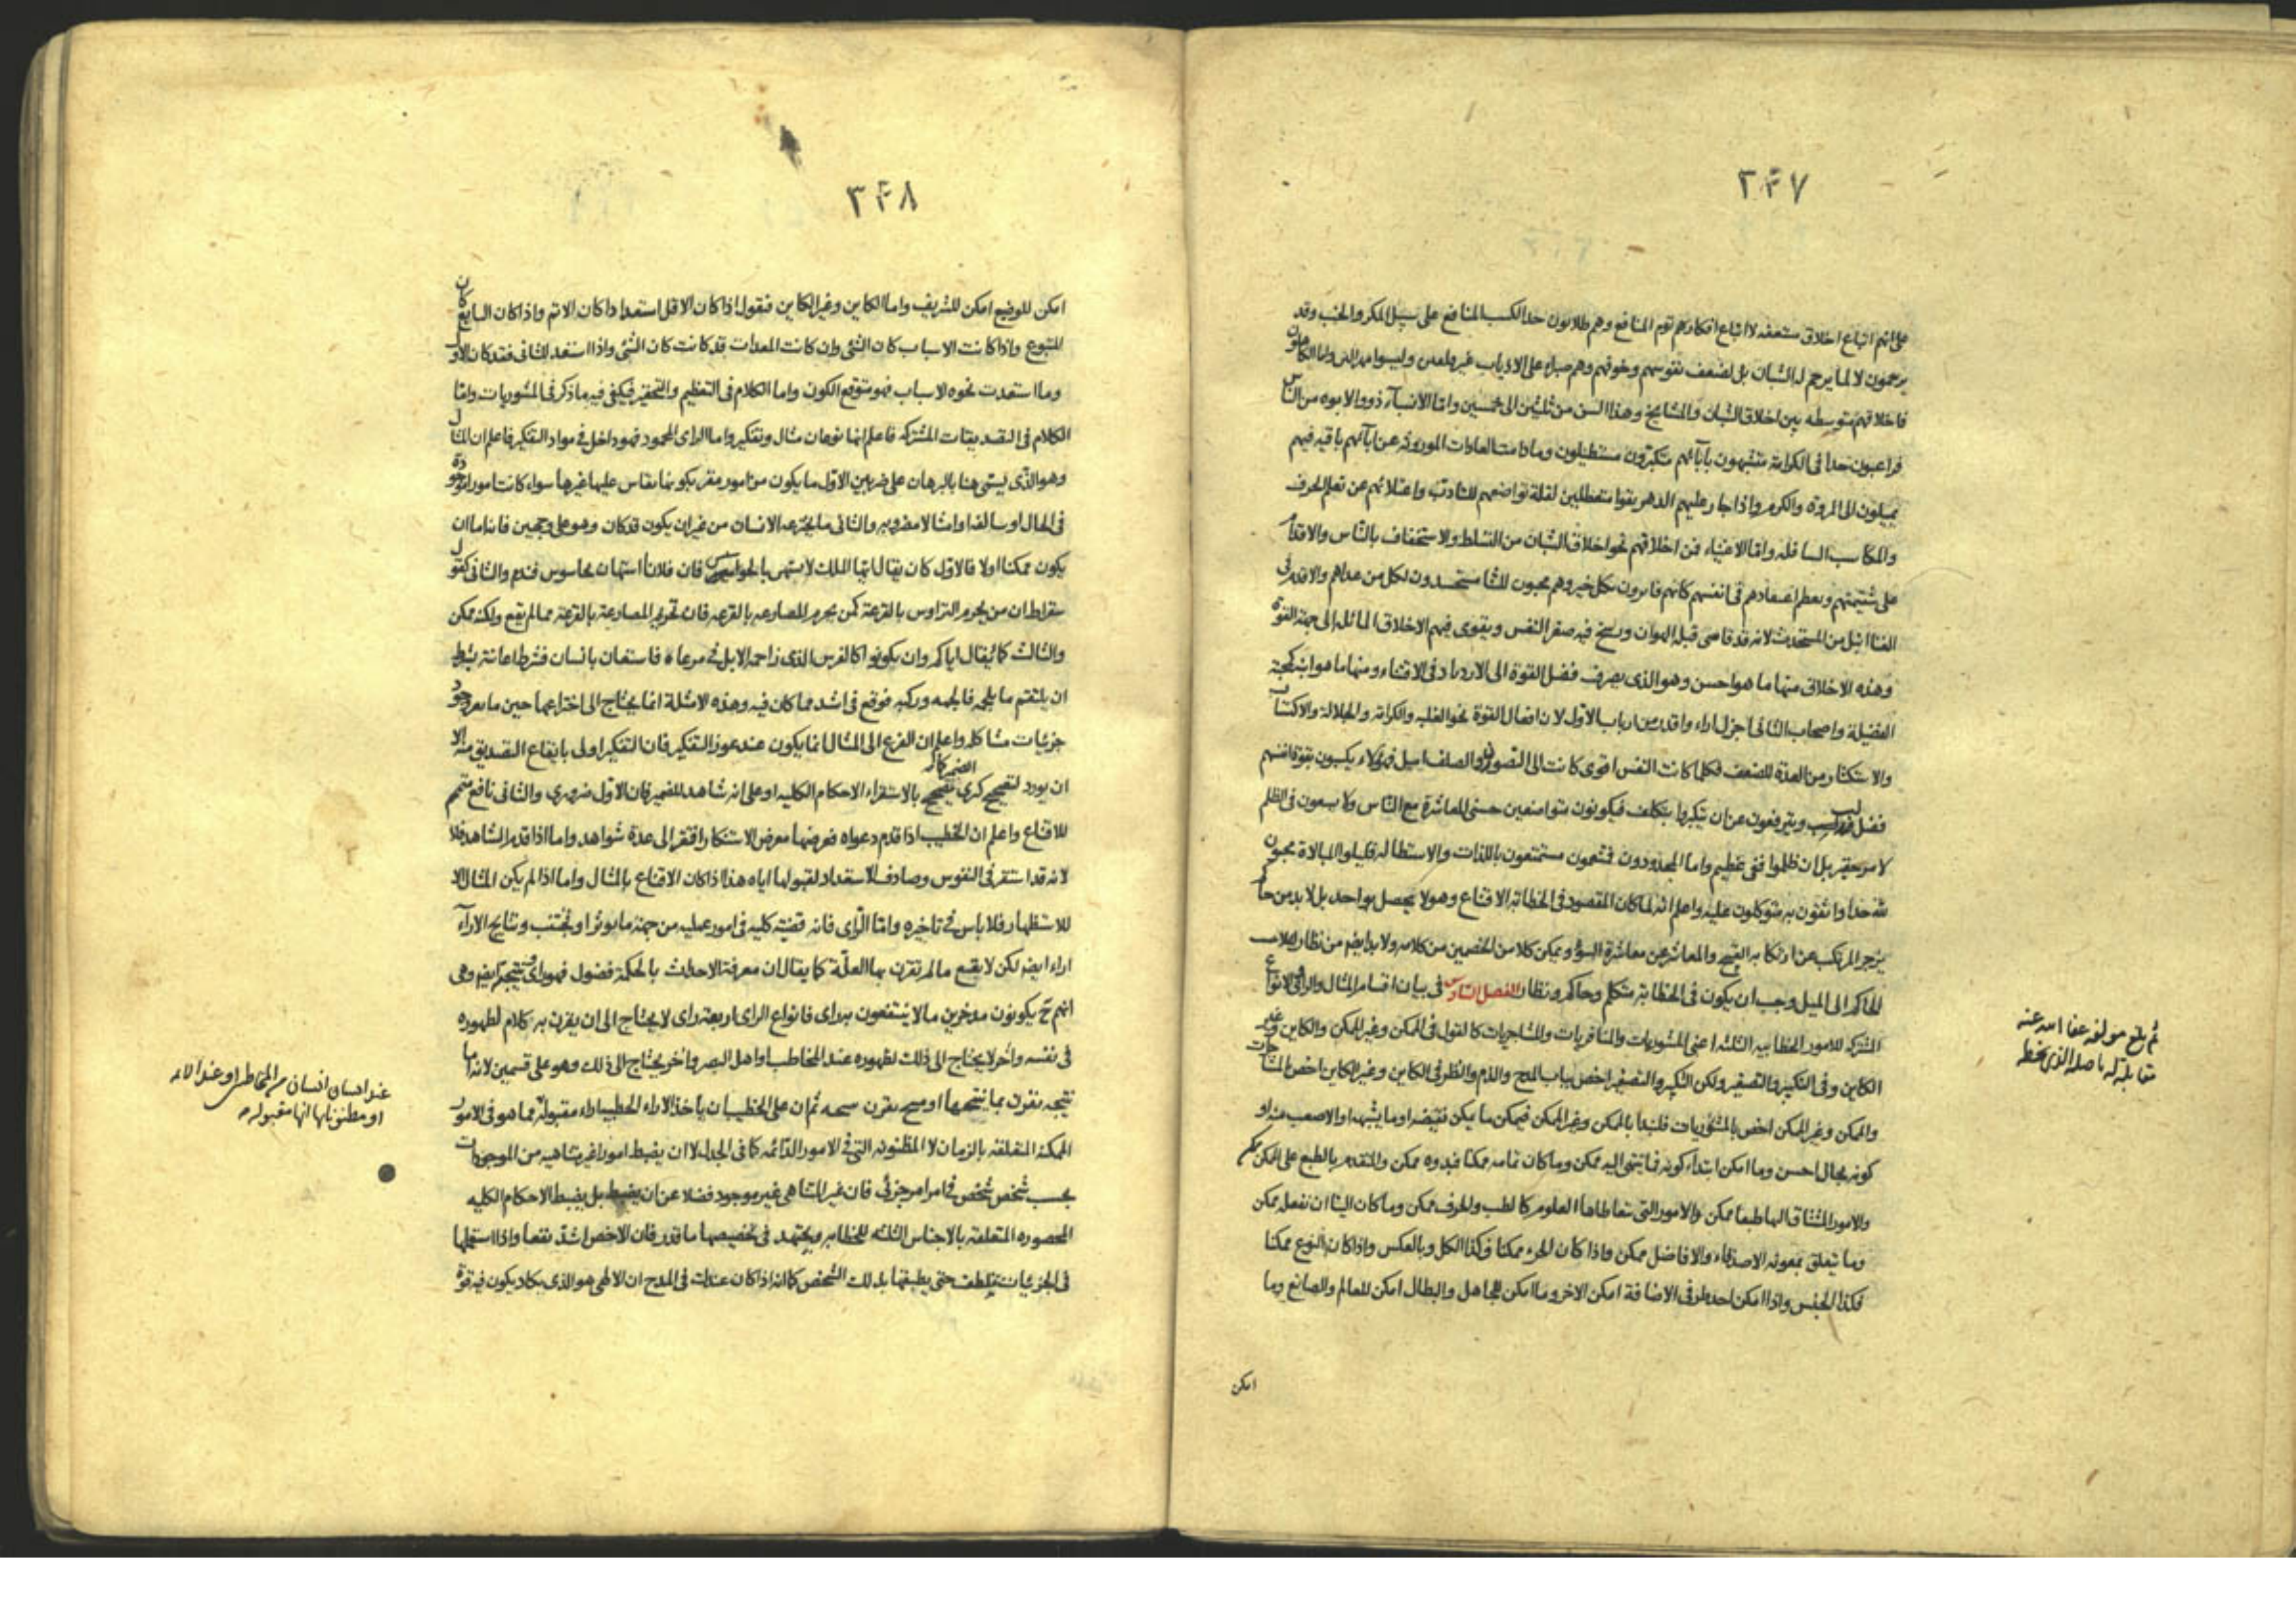 ٣٤٧
على انهم اتباع اخلاق مستعفه لا اتباع افكارهم توم المنافع وهم طلابون حدا لكسب المنافع على سبيل المكر والخبث وقد
يرحمون لا لما يرحم له الشبان بل لضعف نفوسهم وخوفهم وهم صبراء على الاذياب غير وليسوا
فاخلاقهم متوسطه بين اخلاق الشبان والمشايخ وهذا السن من ثلثين الى خمسين واما الانسباء ذووا الابوه من الناس
فراغبون جدا فى الكرامة متشبهون بآبائهم متكبرون مستطيلون وما دامت العادات الموروثه عن ابائهم باقيه فيهم
يميلون الى المروة والكرم واذا جار عليهم الدهر بقوا متعطلين لقلة تواضعهم للتادب واعتلائهم عن تعلم الحرف
والمكاسب السافله واما الاغنياء فمن اخلاقهم نحو اخلاق الشبان من التسلط والاستخفاف بالناس والاقدام
على شتيمتهم ويعظم اعتقادهم فى انفسهم كانهم فائزون بكل خير وهم محبون للثنا متحسدون لكل من عداهم والاقدم فى
الغنا انبل من المستحدث لانه قد قاسى قبله الهوان ورسخ فيه صغر النفس ويقوى فيهم الاخلاق المائله الى جهة القوة
وهذه الاخلاق منها ما هو احسن وهو الذى يصرف فضل القوة الى الازدياد فى الاقتناء ومنها ما هو
الفضيلة واصحاب الثانى اجزل اراء واقدم من ارباب الاول لان افعال القوة نحو الغلبه والكرامه والجلالة والاكتساب
والاستكثار من العدة للضعف فكلما كانت النفس اقوى كانت الى التصون والصلف اميل فهولاء يكسبون بقوة انفسهم
فضل ويترفعون عن ان يتكبروا بتكلف فيكونون متواضعين حسنى المعاشرة مع الناس ولا يسعون فى الظلم
لامر حقير بل ان ظلموا ففى عظيم واما المجدودون فمتنعمون مستمتعون باللذات والاستطاله قليلوا المبالاة محبون
لله جدا واثقون به متوكلون عليه واعلم انه لما كان المقصود فى الخطابة الاقناع وهو لا يحصل بواحد بل لابد من حاكم
يزجر المرتكب عن ارتكابه القبيح والمعاشر عن معاشرة السوء ويمكن كلا من الخصمين من كلامه ولابد ايضا من نظار
الحاكم الى الميل وجب ان يكون فى الخطابة متكلم وحاكم ونظار الفصل السادس فى بيان اقسام المثال والراى والانواع
المشتركه للامور الخطابيه الثلثه اعنى المشوريات والمنافريات والمشاجريات كالقول فى الممكن وغير الممكن والكاين وغير
الكاين وفى التكبير والتصغير ولكن التكبير والتصغير اخص بباب المدح والذم والنظر فى الكاين وغير الكاين اخص المشاجرات
والممكن وغير الممكن اخص بالمشوريات فلنبدأ بالممكن وغير الممكن فيمكن ما يمكن نقيضه او ما يشبهه او الاصعب منه او
كونه بحال احسن وما امكن ابتداء كونه فما ينتهى اليه ممكن وما كان تمامه ممكنا فبدوه ممكن والمتقدم بالطبع على الممكن ممكن
والامور المشتاق اليها طبعا ممكن والامور التى تتعاطاها العلوم كالطب والحرف ممكن وما كان الينا ان نفعله ممكن
وما يتعلق بمعونه الاصدقاء والافاضل ممكن واذا كان الجزء ممكنا فكذا الكل وبالعكس واذا كان النوع ممكنا
فكذا الجنس واذا امكن احد طرفى الاضافة امكن الاخر وما امكن للجاهل والبطال امكن للعالم والصانع وما
امكن
ثم بلغ مولفه عفا الله عنه
مقابلة له باصله الذى بخطه
٣٤٨
امكن للوضيع امكن للشريف واما الكاين وغير الكاين فنقول اذا كان الاقل استعدادا كان الاتم واذا كان التابع كان
المتبوع واذا كانت الاسباب كان الشئ وان كانت المعدات قد كانت كان الشئ واذا استعد للثانى فقد كان الاول
وما استعدت نحوه الاسباب فهو متوقع الكون واما الكلام فى التعظيم والتحقير فيكفى فيه ما ذكر فى المشوريات واما
الكلام فى التصديقات المشتركه فاعلم انها نوعان مثال وتفكير واما الراى المحمود فهو داخل فى مواد التفكير فاعلم ان المثال
وهو الذى يسمى هنا بالبرهان على ضربين الاول ما يكون من امور مقر بكونها يقاس عليها غيرها سواء كانت امورا موجودة
فى الحال او سالفه او امثالا مضروبه والثانى ما يخترعه الانسان من غير ان يكون قد كان وهو على وجهين فانه اما ان
يكون ممكنا اولا فالاول كان يقال ايها الملك لا تستهن بالجواسيس فان فلانا استهان بجاسوس فندم والثانى كقول
سقراط ان من يحرم التراوس بالقرعة كمن يحرم المصارعه بالقرعه فان تحريم المصارعة بالقرعة مما لم يقع ولكنه ممكن
والثالث كما يقال اياكم وان يكونوا كالفرس الذى زاحمه الابل فى مرعاه فاستعان بانسان فشرط اعانته بشرط
ان يلتقم ما يلجمه فالجمه وركبه فوقع فى اشد مما كان فيه وهذه الامثلة انما يحتاج الى اختراعها حين ما يعوز وجود
جزئيات مشاكله واعلم ان الفزع الى المثال انما يكون عند عوز التفكير فان التفكير اولى بايقاع التصديق منه الا
ان يورد لتصحيح كبرى الضمير كانه تصحيح بالاستقراء الاحكام الكليه او على انه شاهد للضمير فان الاول ضرورى والثانى نافع متمم
للاقناع واعلم ان الخطيب اذا قدم دعواه فعرضها معرض الاستنكار افتقر الى عدة شواهد واما اذا قدم الشاهد فلا
لانه قد استقر فى النفوس وصادف الاستعداد لقبولها اياه هذا اذا كان الاقناع بالمثال واما اذا لم يكن المثال الا
للاستظهار فلا باس فى تاخيره واما الراى فانه قضية كليه فى امور عمليه من جهة ما يوثر او يجتنب ونتايج الاراء
اراء ايضا لكن لا يقنع ما لم تقرن بها العلة كما يقال ان معرفة الاحداث بالحكمة فضول فهو راى ونتيجة ايضا وهى
انهم ح يكونون مدخرين ما لا ينتفعون به راى فانواع الراى اربعة راى لا يحتاج الى ان يقرن به كلام لظهوره
فى نفسه واخر لا يحتاج الى ذلك لظهوره عند المخاطب او اهل البصر واخر يحتاج الى ذلك وهو على قسمين لانه اما
نتيجه يقرن بما ينتجها او منتج يقرن بنتيجته ثم ان على الخطيب ان ياخذ الاراء الخطبيه اراء مقبولة مما هو فى الامور
الممكنة المتعلقة بالزمان لا المظنونه التى فى الامور الدائمه كما فى الجدل لا ان يضبط امورا غير متناهيه من الموجودات
بحسب شخص شخص فى امر امر جزئى فان غير المتناهى غير موجود فضلا عن ان يضبط بل يضبط الاحكام الكليه
المحصوره المتعلقة بالاجناس الثلثه للخطابه ويجتهد فى تخصيصها ما قدر فان الاخص اشد نفعا واذا استعملها
فى الجزئيات يتلطف حتى يطبقها بذلك الشخص كما انه اذا كان عندك فى المدح ان الالهى هو الذى يكاد يكون فيه قوة
عند انسان انسان من المخاطبين او عند الائمه
او مظنونا بها انها مقبوله